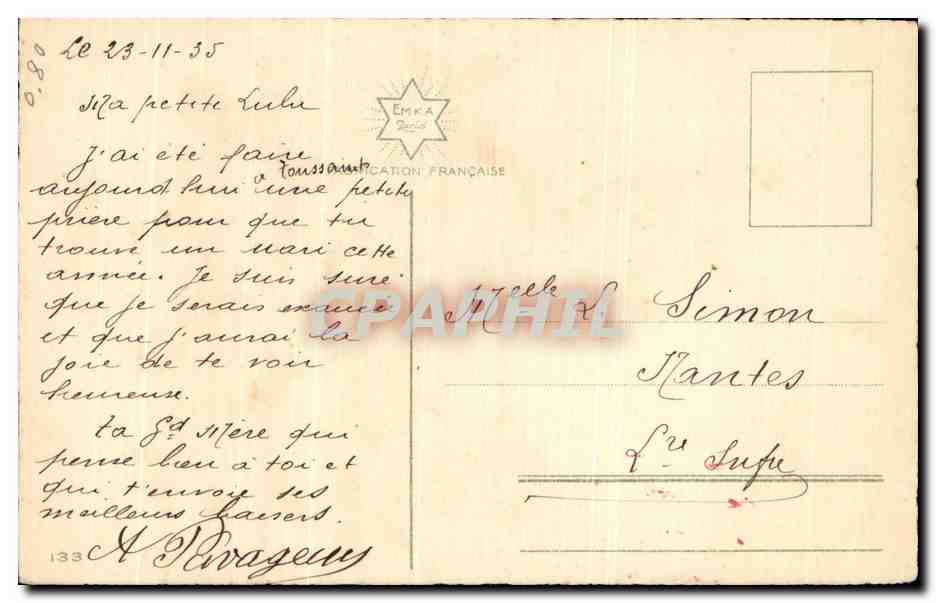 0.80
Le 23-11-35
Ma petite Lulu
J'ai été faire
aujourd'hui a Toussaint une petite
prière pour que tu
trouve un mari cette
année. Je suis sure
que je serais exaucé
et que j'aurai la
joie de te voir
heureuse.
Ta Gd Mère qui
pense bien à toi et
qui t'envoie ses
meilleurs baisers.
133
EMKA
Paris
FABRICATION FRANÇAISE
CPAPHIL
Melle L. Simon
Nantes
Lre Infre